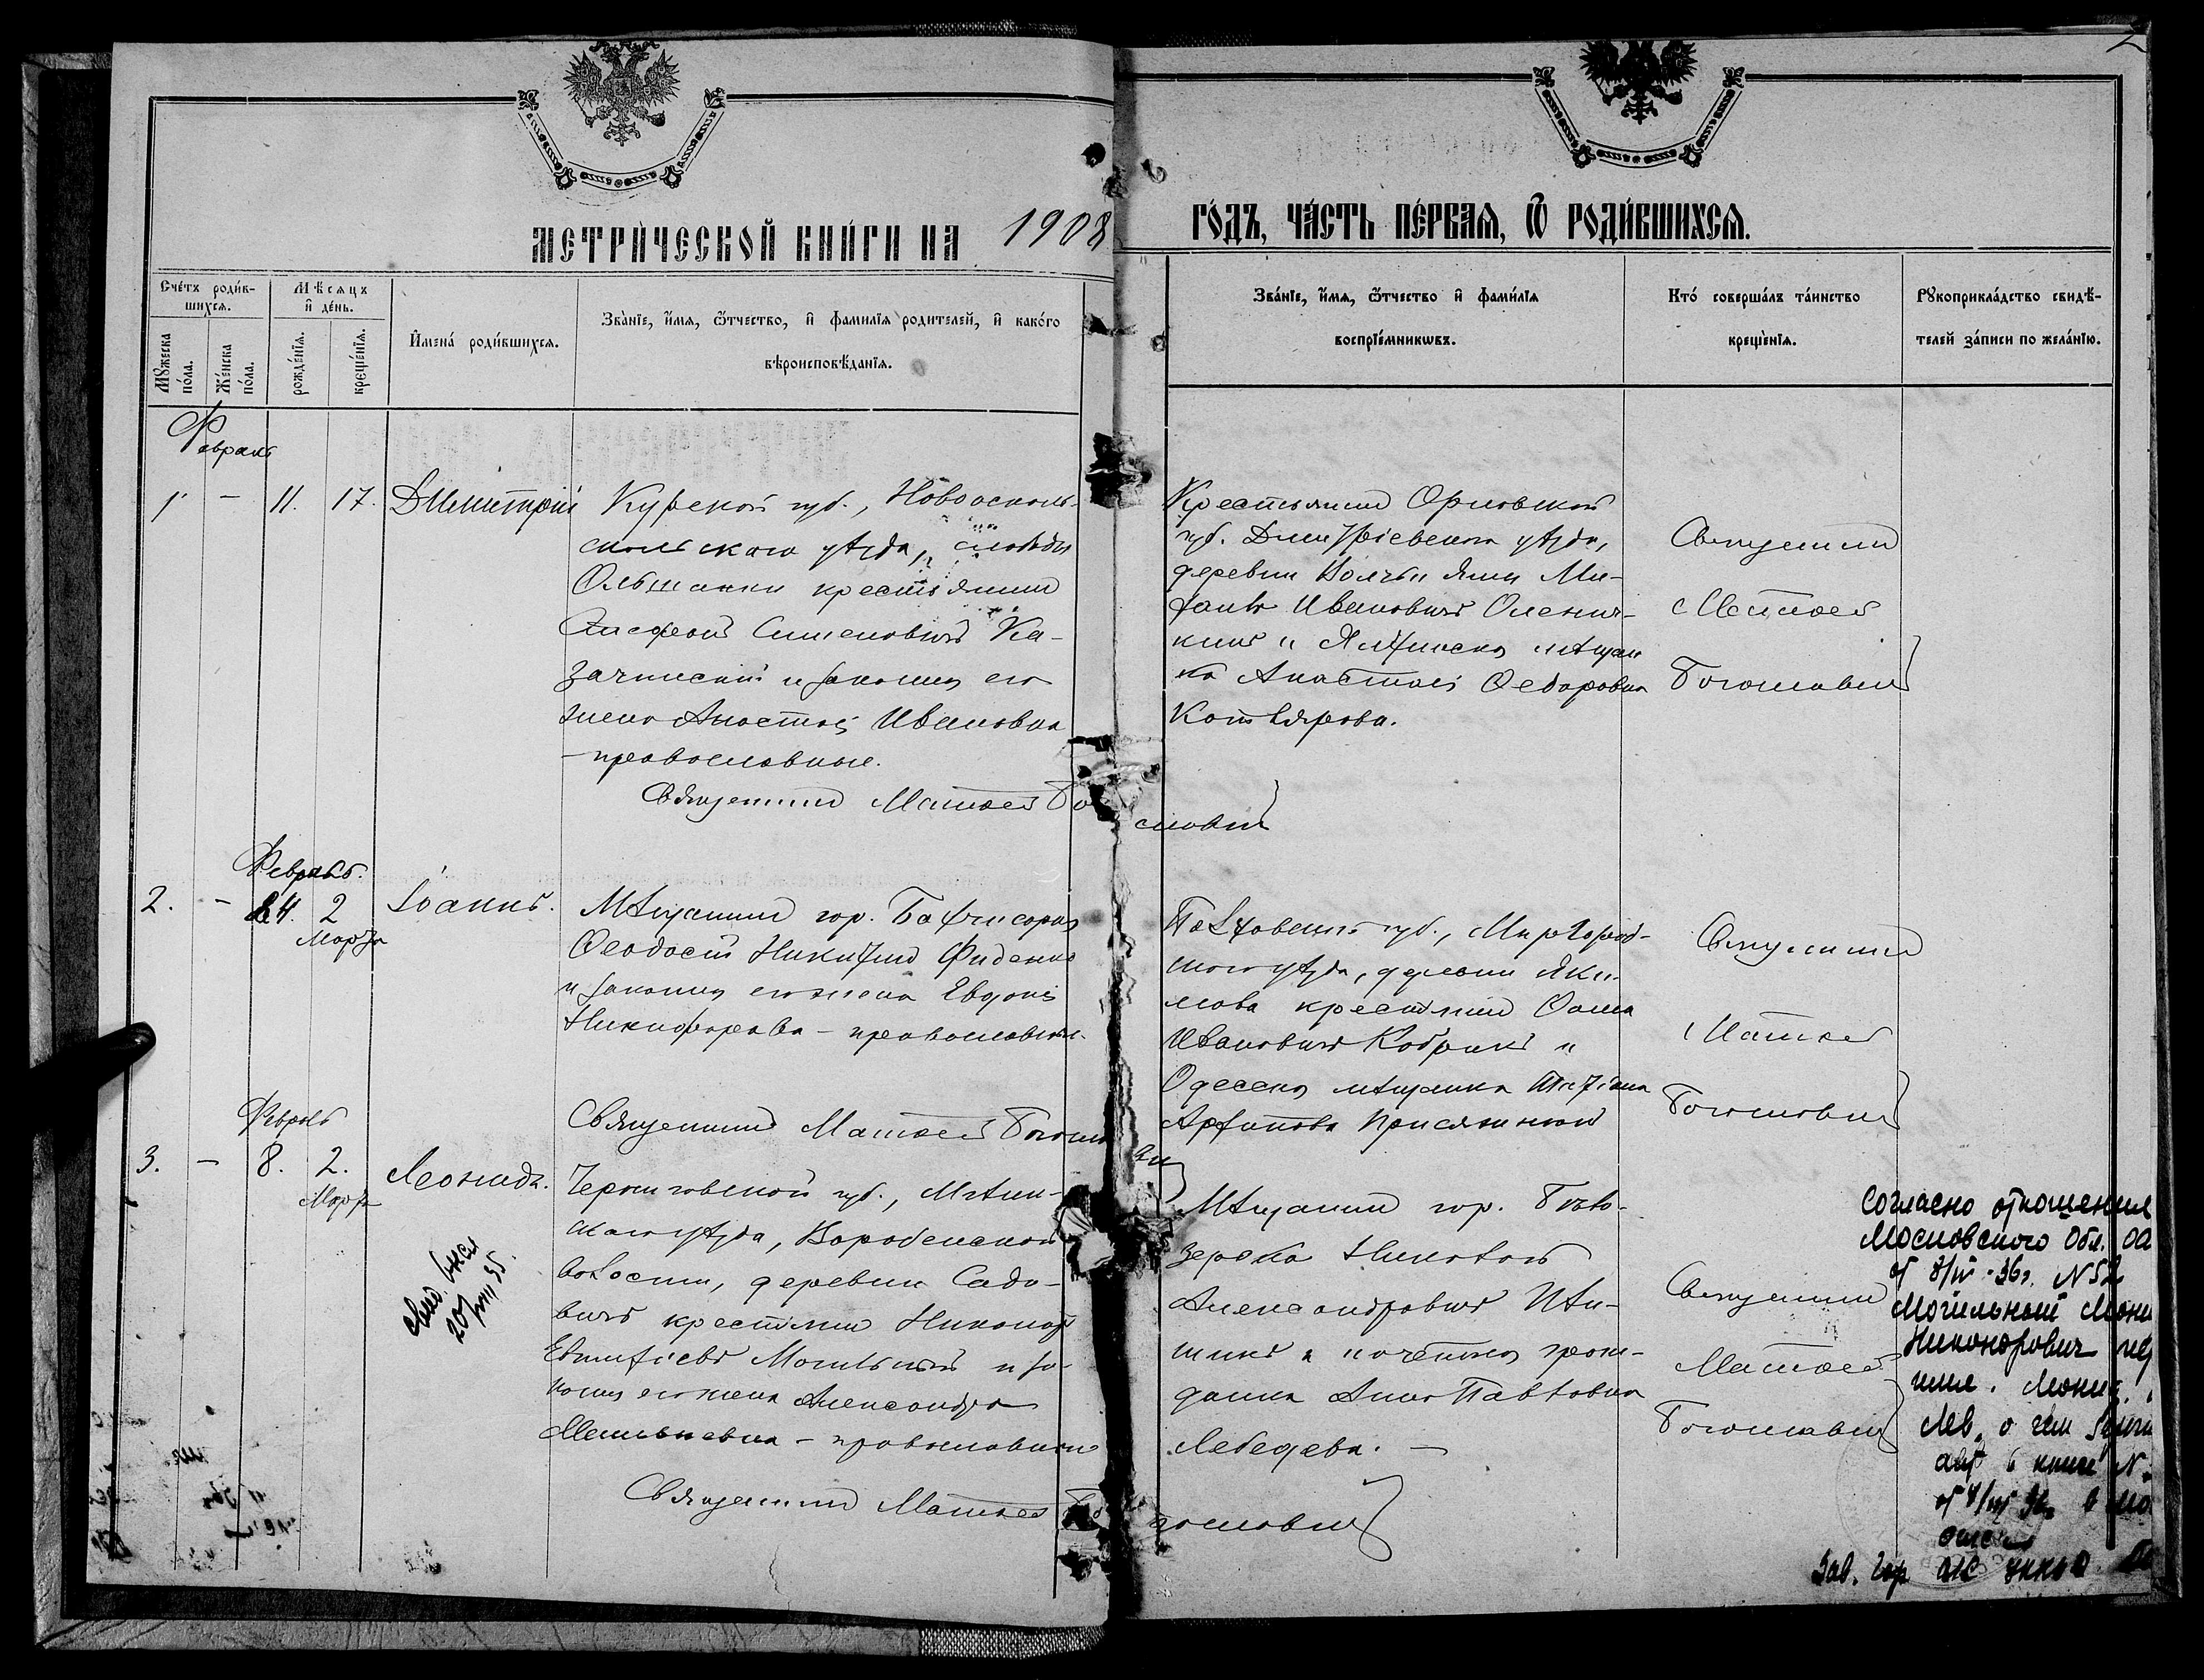 2
МЕТРИ́ЧЕСКОЙ КНИ́ГИ НА 1908 ГО́ДЪ, ЧА́СТЬ ПЕ́РВАѦ, Ѡ҆ РОДИ́ВШИХСѦ.
Счéтъ роди́в-
шихсѧ.
Мꙋжеска
по́ла.
Же́нска
по́ла.
Мѣ́сяцъ
и҆ де́нь.
рожде́нїѧ.
креще́нїѧ.
И҆мена́ роди́вшихсѧ.
Зва́нїе, и҆́мѧ, ѻ҆́тчество, и҆ фами́лїѧ родителей, и҆ како́го
вѣроисповѣ́данїѧ.
Зва́нїе, и҆́мѧ, ѻ҆́тчество и҆ фами́лїѧ
воспрїе́мникѡвъ.
Кто́ соверша́лъ та́инство
креще́нїѧ.
Рꙋкоприкла́дство свидѣ́-
телей за́писи по жела́нїю.
Февраль
1 - 11. 17. Димитрій
Курской губ., Новоосколь-
скаго уѣзда, слободы
Ольшанки крестьянинъ
Симеоновичъ Ка-
зачинскій и законная его
жена Анастасія Ивановна
- православные.
Священникъ Матѳей Бо
словскій
Крестьянинъ Орловской
губ. Дмитріевскаго уѣзда,
деревни Волчьи Ямы Ми-
хаилъ Ивановичъ
и Ялтинская мѣщан
ка Анастасія Ѳедоровна
Котлярова.
Священникъ
Матѳей
Богословскій
Февраль.
2. - 24. 2 Іоаннъ.
Марта
Мѣщанинъ гор. Бахчисарая
Ѳеодосій Никитинъ Фиденко
и законная его жена Евдокія
Никифорова - православные.
Священникъ Матѳей Богосло
вскій
Полтавской губ., Миргород-
скаго уѣзда, деревни Яки-
мова крестьянинъ Ѳома
Ивановичъ Кобринъ и
Одесская мѣщанка Татіана
Архипова
Священникъ
Матѳей
Богословскій
Февраль
3. - 8. 2. Леонидъ.
Марта
20/VIII 35.
Черниговской губ., Мглин-
скаго уѣзда,
волости, деревни Садо-
вичъ крестьянинъ Никаноръ
Евтихіевъ Могильный и за-
конная его жена Александра
- православные
Священникъ Матѳей Бо
гословскій
Мѣщанинъ гор. Бѣло-
зерска Николай
Александровичъ
и почетная граж-
данка Анна Павловна
Лебедева. -
Священникъ
Матѳей
Богословскій
Согласно отношения
Московского Обл. ОА
от 8/IV-36г. N 52
Могильный Леони
Никонорович пер
имя. Леонид.
Лев, о чем
акт в книге N.
Зав. Гор АГС УНКВД